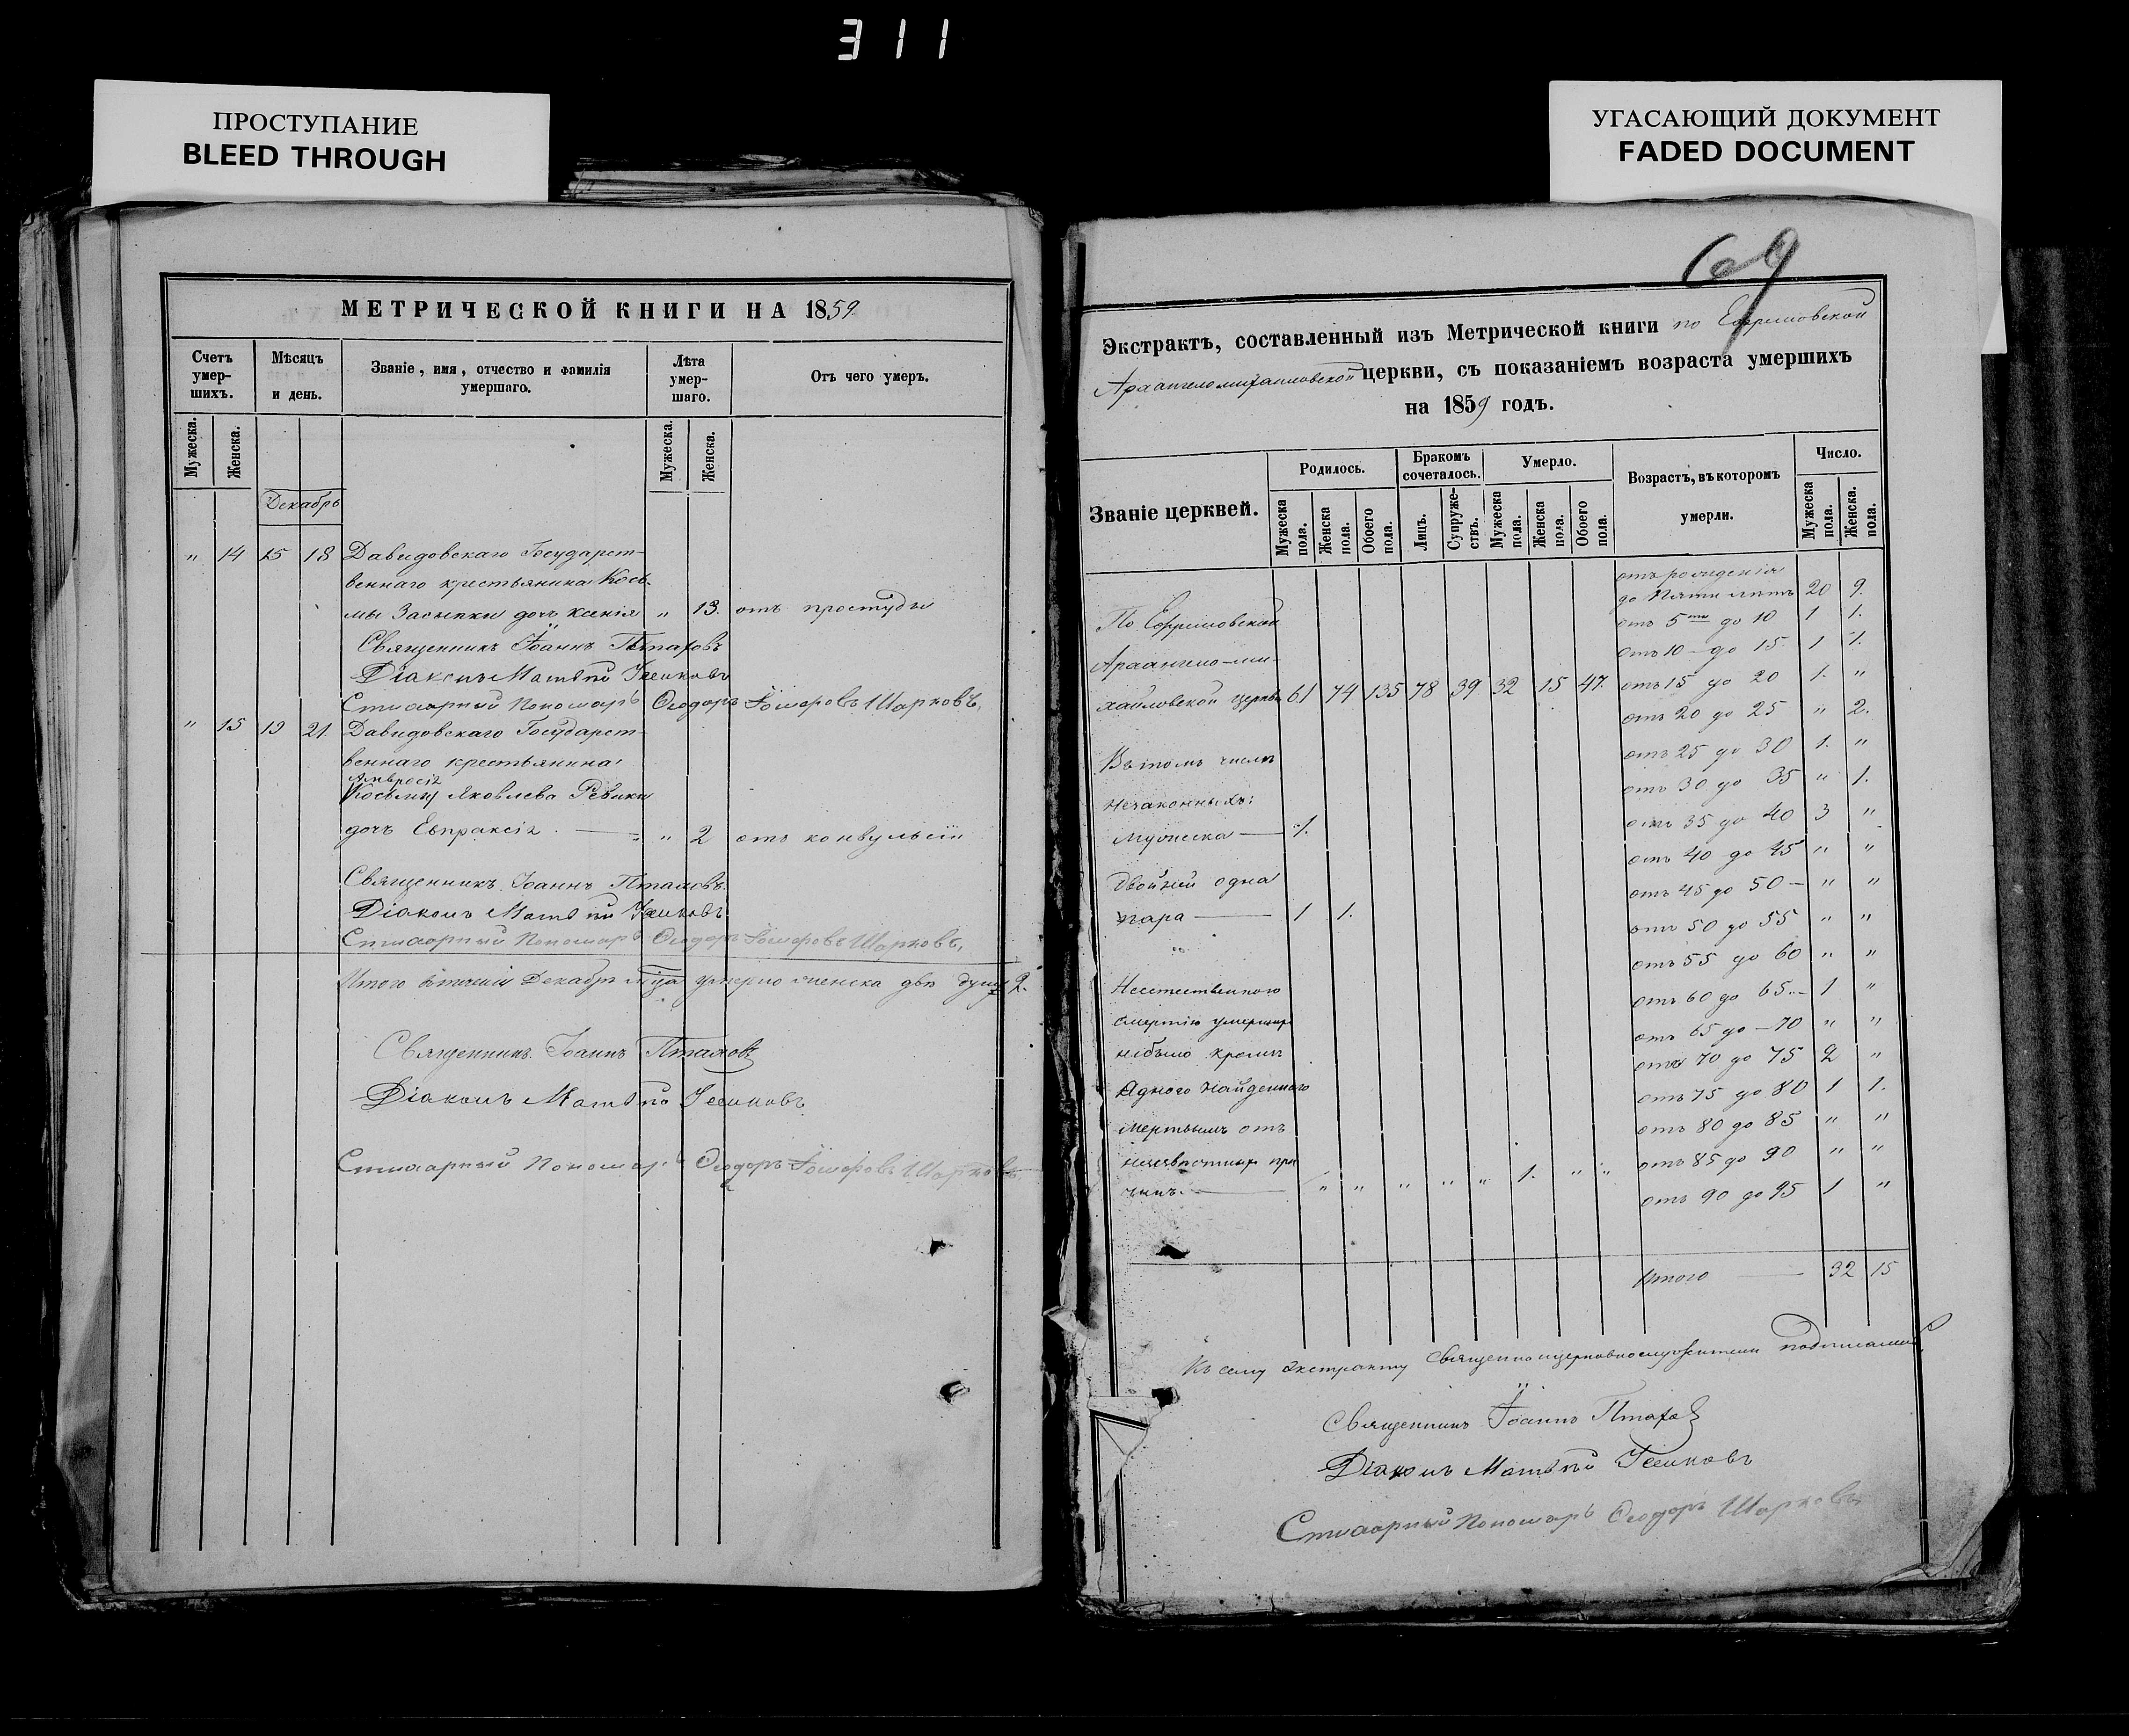 311
ПРОСТУПАНИЕ
BLEED THROUGH
УГАСАЮЩИЙ ДОКУМЕНТ
FADED DOCUMENT
МЕТРИЧЕСКОЙ КНИГИ НА 1859
Счетъ умер-шихъ.
Мѣсяцъ и день.
Званіе, имя, отчество и фамилія умершаго.
Лѣта умер-шаго.
Отъ чего умеръ.
Мужеска. Женска. Мужеска. Женска.
Декабрь
" 14 15 18 Давидовскаго Государст-
веннаго крестьянина Козь-
мы Засыпки дочь Ксенія " 13. отъ простуды
Священникъ Іоаннъ Птаховъ
Діаконъ Матвѣй
Стихарный Пономарь Ѳеодоръ Шарковъ.
" 15 19 21. Давидовскаго Государст-
веннаго крестьянина
Амвросія
Косьмы Яковлева Ревики
дочь Евпраксія " 2 отъ конвульсіи
Священникъ Іоаннъ Птаховъ
Діаконъ Матвѣй
Стихарный Пономарь Ѳеодоръ Шарковъ,
Итого втеченіи Декабрѣ м-ца умерло женска двѣ души 2.
Священникъ Іоаннъ Птаховъ
Діаконъ Матвѣй
Стихарный Пономарь Ѳеодоръ Шарковъ
69
Экстрактъ, составленный изъ Метрической книги по Ефремовской
Архангеломихайловской церкви, съ показаніемъ возраста умершихъ
на 1859 годъ.
Званіе церквей.
Родилось.
Бракомъ сочеталось.
Умерло.
Возрастъ, въ которомъ умерли.
Число.
Мужеска пола. Женска пола. Обоего пола. Лицъ. Супруже-ствъ. Мужеска пола. Женска пола. Обоего пола. Мужеска пола. Женска. пола.
По Ефремовской
Архангело-ми-
хайловской церкви 61 74 135 78 39 32 15 47.
Въ томъ числѣ
незаконныхъ:
Мужеска — 1.
Двойней одна
пара — 1 1.
Неестественною
смертію умершихъ
небыло кромѣ
одного найденнаго
мертвымъ отъ
неизвѣстныхъ при
чинъ. — " " " " " 1. " "
отъ рожденія
до пяти лѣтъ 20 9.
отъ 5ти до 10 1 1.
отъ 10 — до 15. 1 1.
отъ 15 до 20 1. "
отъ 20 до 25 " 2.
отъ 25 до 30 1. "
отъ 30 до 35 " 1.
отъ 35 до 40 3 "
отъ 40 до 45 " "
отъ 45 до 50 — " "
отъ 50 до 55 " "
отъ 55 до 60 " "
отъ 60 до 65. — 1 "
отъ 65 до — 70 " "
отъ 70 до 75 2 "
отъ 75 до 80 1 1.
отъ 80 до 85 " "
отъ 85 до 90 " "
отъ 90 до 95 1 "
Итого — 32 15
Къ сему экстракту священноицерковнослужители подписались
Священникъ Іоаннъ Птаховъ
Діаконъ Матвѣй
Стихарный Пономарь Ѳеодоръ Шарковъ